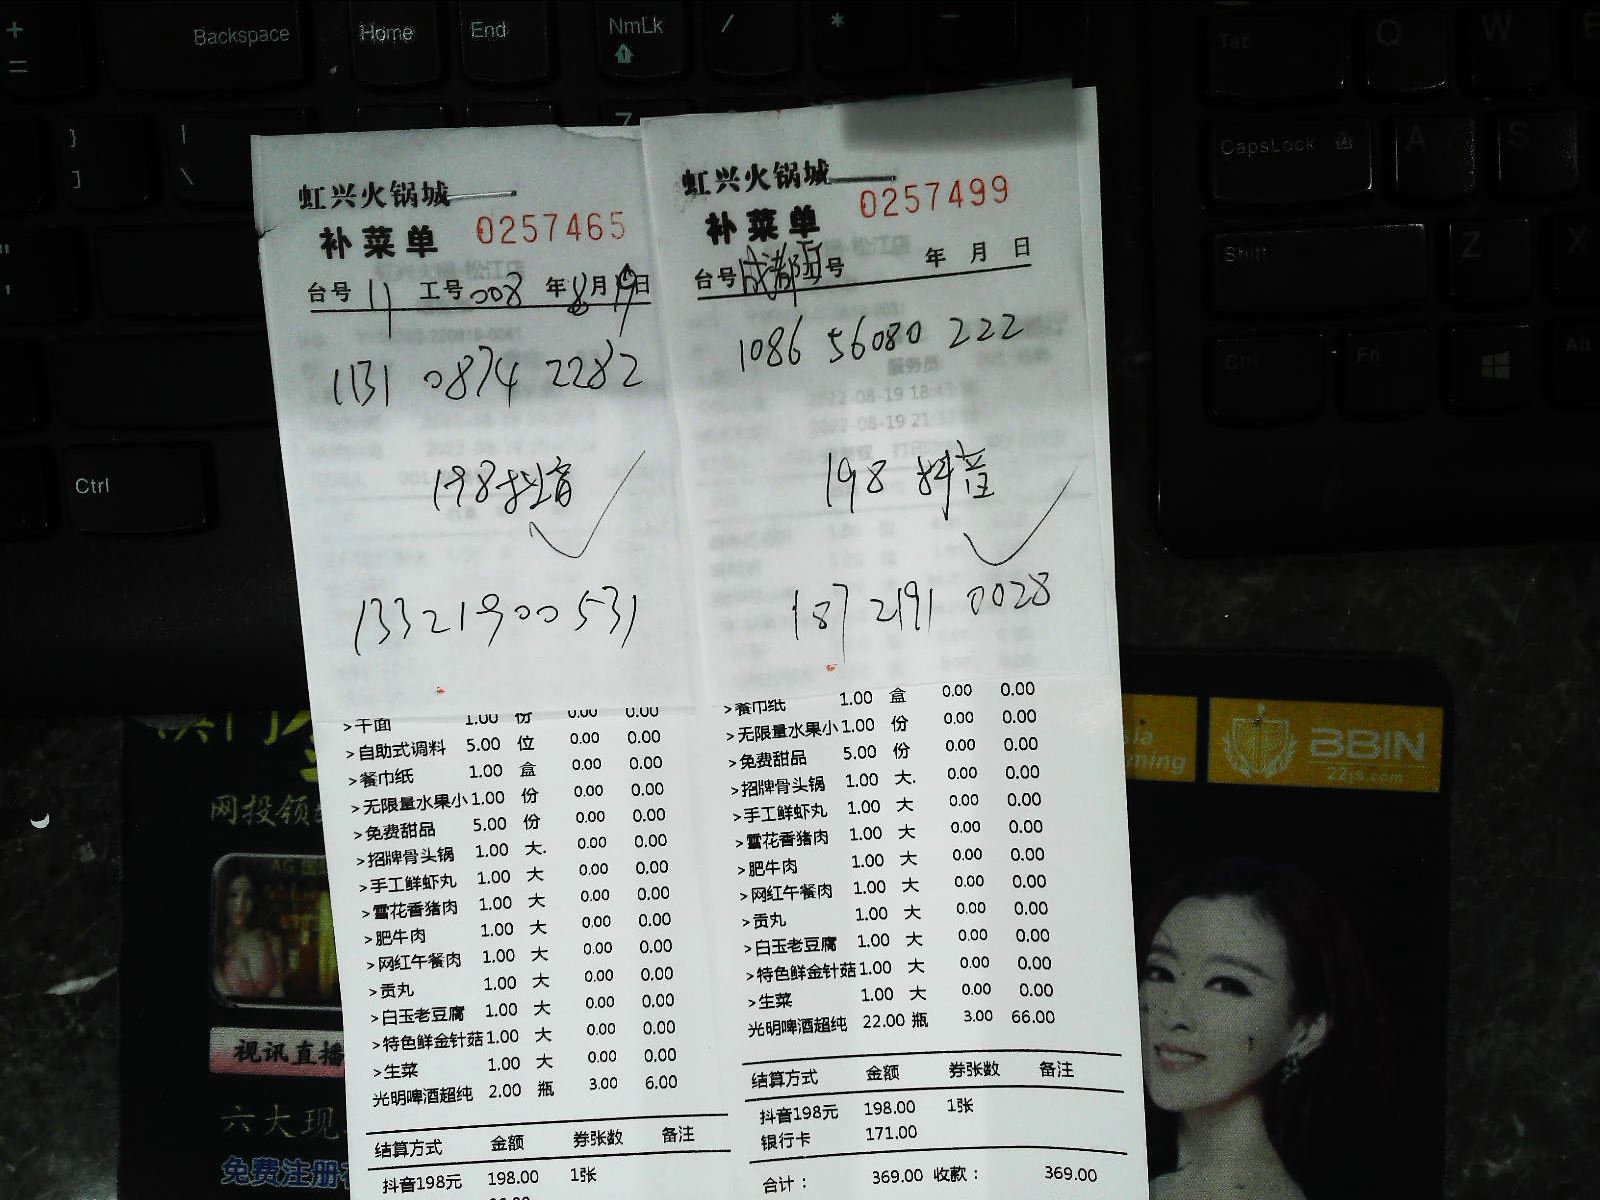 +
=
Backspace
Home
End
NmLk
/
*
-
Tab
Q
W
E
}
]
|
\
7
CapsLock
A
S
"
'
Shift
Z
X
Ctrl
Fn
Alt
Ctrl
虹兴火锅城
0257465
补菜单
台号 11 工号 008 年 8月 19日
1131 0874 2282
198抖音
133 219 00 531
>干面 1.00 份 0.00 0.00
>自助式调料 5.00 位 0.00 0.00
>餐巾纸 1.00 盒 0.00 0.00
>无限量水果小 1.00 份 0.00 0.00
>免费甜品 5.00 份 0.00 0.00
>招牌骨头锅 1.00 大. 0.00 0.00
>手工鲜虾丸 1.00 大 0.00 0.00
>雪花香猪肉 1.00 大 0.00 0.00
>肥牛肉 1.00 大 0.00 0.00
>网红午餐肉 1.00 大 0.00 0.00
>贡丸 1.00 大 0.00 0.00
>白玉老豆腐 1.00 大 0.00 0.00
>特色鲜金针菇 1.00 大 0.00 0.00
>生菜 1.00 大 0.00 0.00
光明啤酒超纯 2.00 瓶 3.00 6.00
结算方式 金额 券张数 备注
抖音198元 198.00 1张
虹兴火锅城
0257499
补菜单
台号 成都 号 年 月 日
1086 56080 222
服务员
2022-08-19 18:4
2022-08-19 21:
198 抖音
187 2191 0028
>餐巾纸 1.00 盒 0.00 0.00
>无限量水果小 1.00 份 0.00 0.00
>免费甜品 5.00 份 0.00 0.00
>招牌骨头锅 1.00 大. 0.00 0.00
>手工鲜虾丸 1.00 大 0.00 0.00
>雪花香猪肉 1.00 大 0.00 0.00
>肥牛肉 1.00 大 0.00 0.00
>网红午餐肉 1.00 大 0.00 0.00
>贡丸 1.00 大 0.00 0.00
>白玉老豆腐 1.00 大 0.00 0.00
>特色鲜金针菇 1.00 大 0.00 0.00
>生菜 1.00 大 0.00 0.00
光明啤酒超纯 22.00 瓶 3.00 66.00
结算方式 金额 券张数 备注
抖音198元 198.00 1张
银行卡 171.00
合计： 369.00 收款： 369.00
网投领
AG
视讯直播
六大现
免费注册
sia
ming
BBIN
22js.com